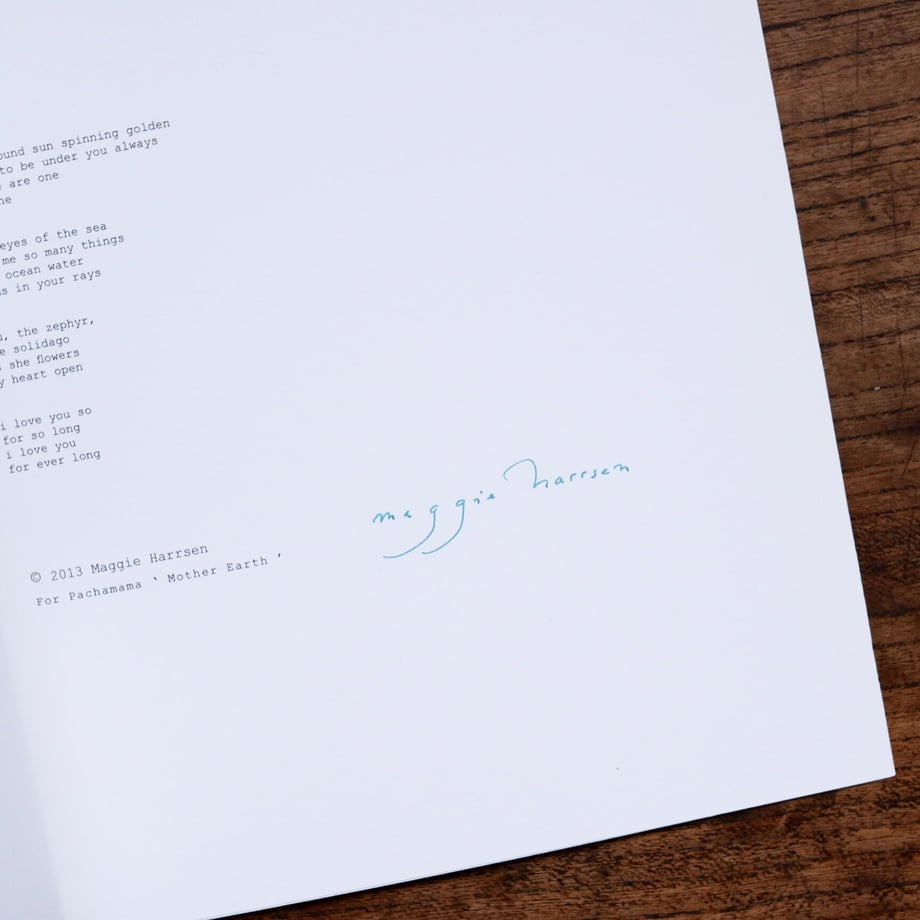 sun spinning golden
to be under you always
are one
eyes of the sea
me so many things
ocean water
in your rays
, the zephyr,
solidago
she flowers
heart open
i love you so
for so long
i love you
for ever long
© 2013 Maggie Harrsen
For Pachamama ' Mother Earth '
maggie harrsen